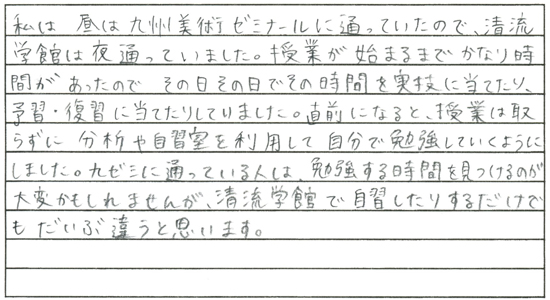 私は 昼は九州美術ゼミナールに通っていたので、清流
学館は夜通っていました。授業が始まるまでかなり時
間があったので その日その日でその時間を実技に当てたり、
予習・復習に当てたりしていました。直前になると、授業は取
らずに 分析や自習室を利用して自分で勉強していくように
しました。九ゼミに通っている人は、勉強する時間を見つけるのが
大変かもしれませんが、清流学館で自習したりするだけで
もだいぶ違うと思います。